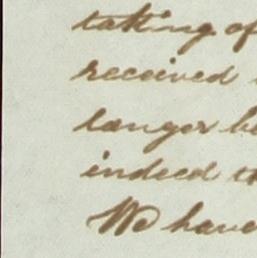 taking of
received
longer be
indeed th
We have